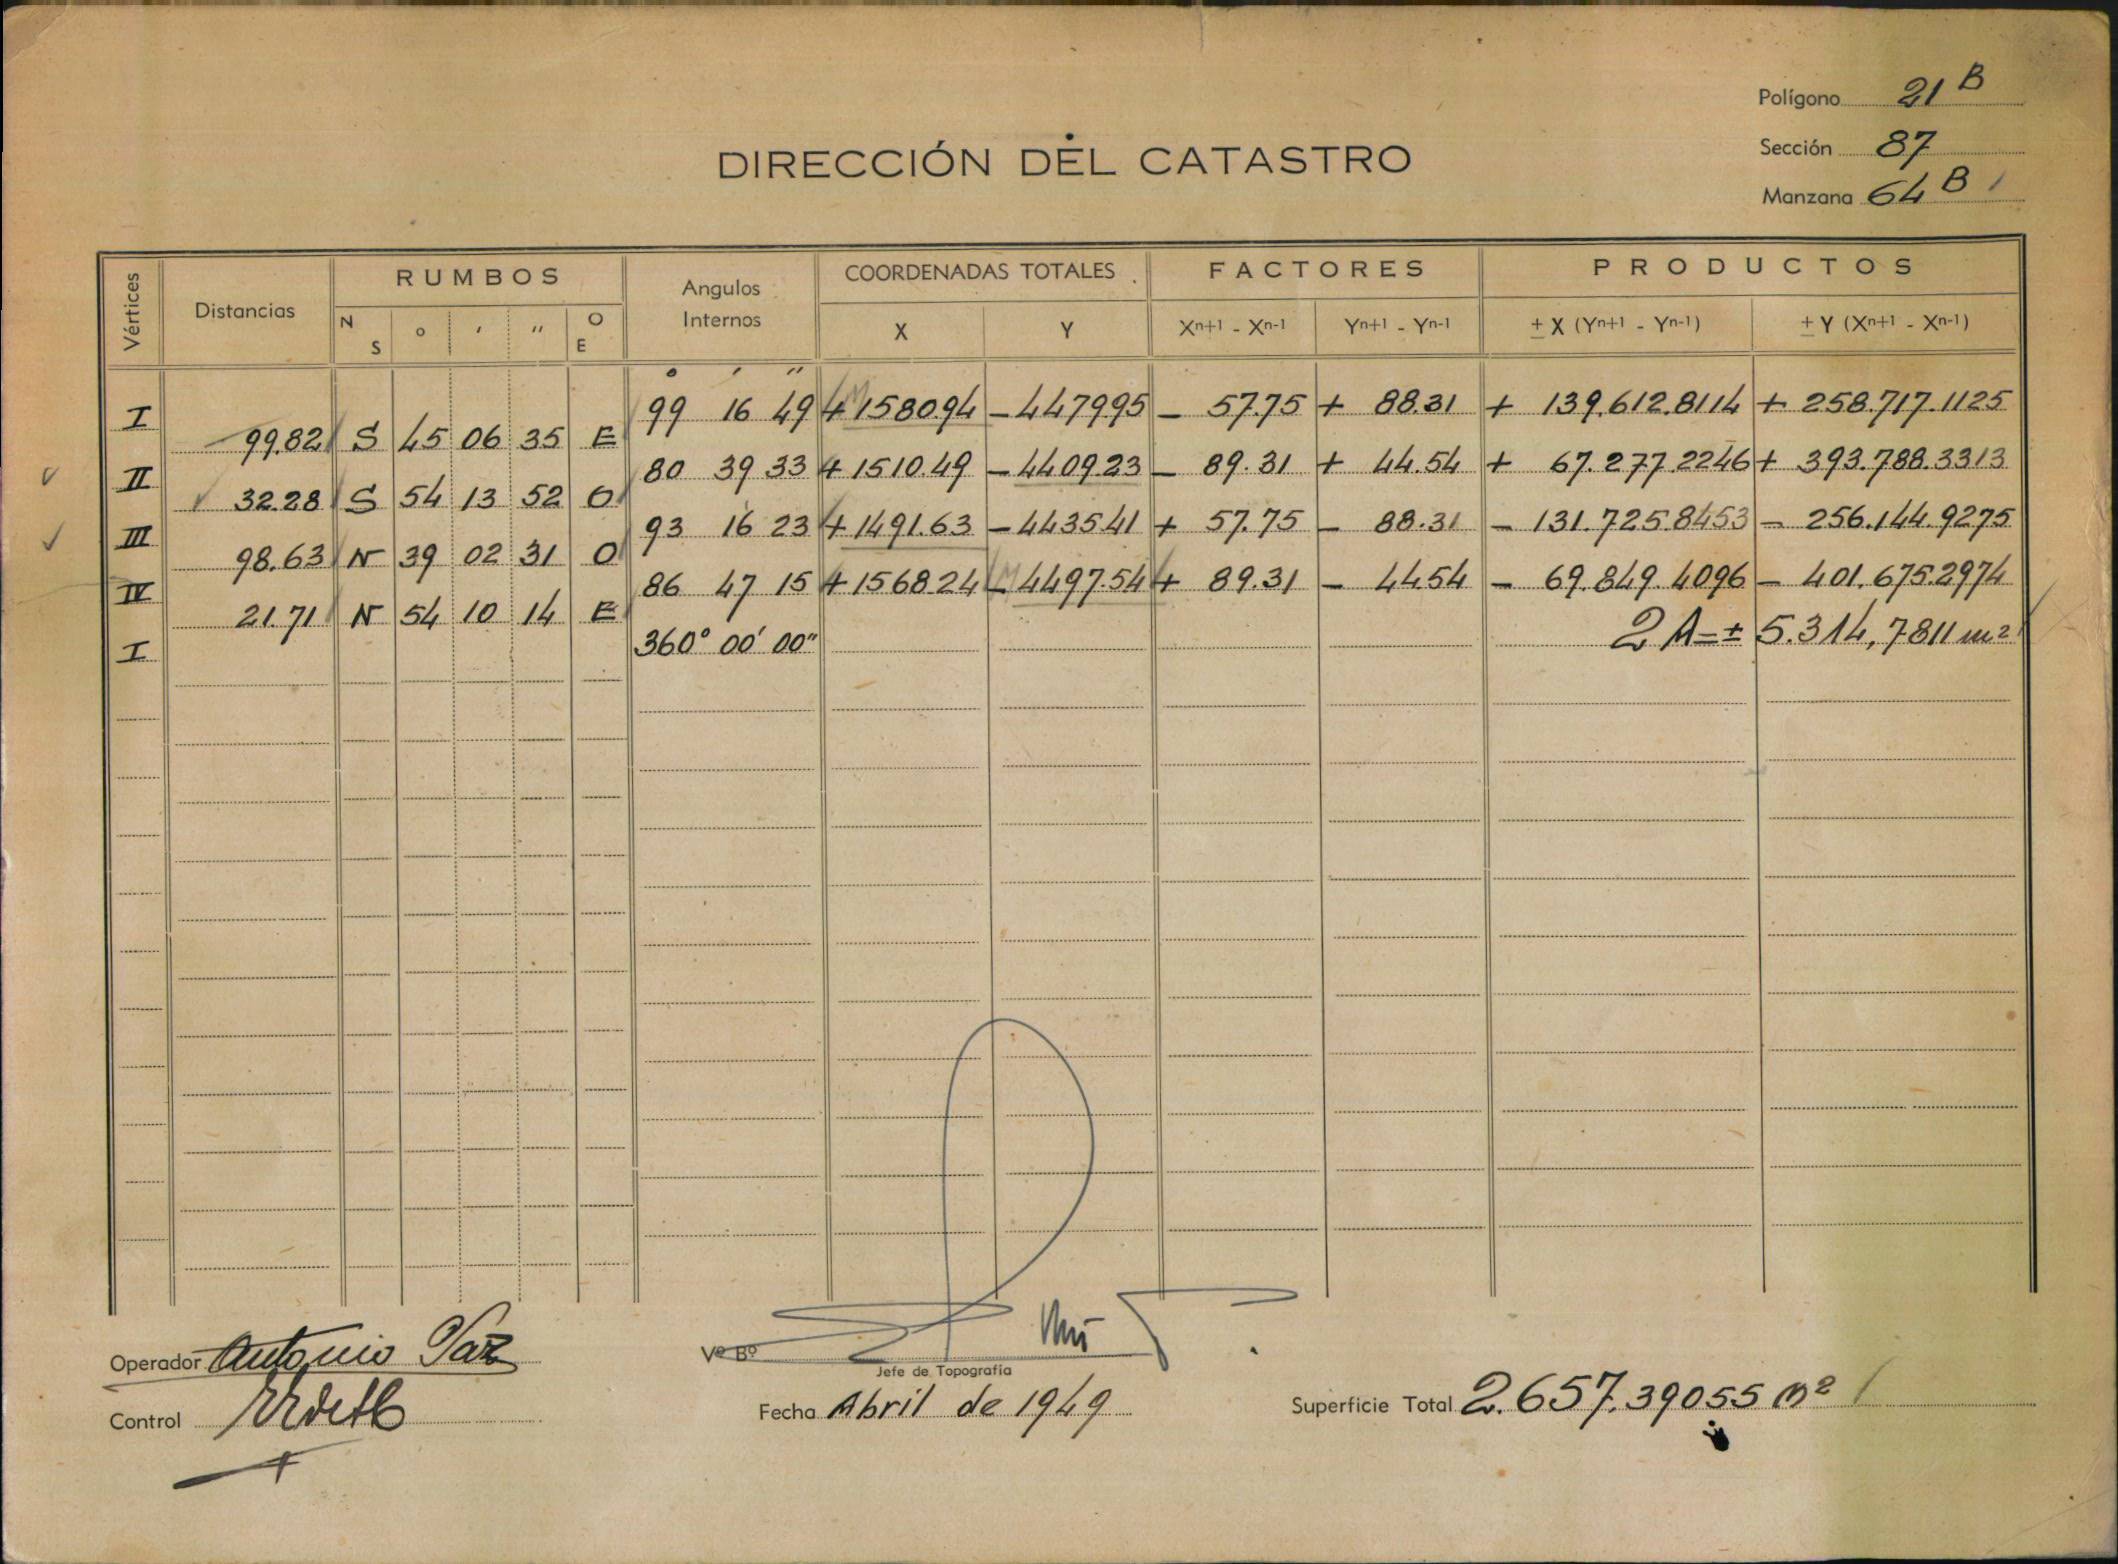 Polígono 21 B
Sección 87
Manzana 64 B
DIRECCIÓN DEL CATASTRO
Vértices Distancias RUMBOS Angulos Internos COORDENADAS TOTALES FACTORES PRODUCTOS
N S ° ' '' O E X Y Xn+1 - Xn-1 Yn+1 - Yn-1 ± X (Yn+1 - Yn-1) ± Y (Xn+1 - Xn-1)
° ' ''
I 99 16 49 + 1580.94 - 4479.95 - 57.75 + 88.31 + 139.612.8114 + 258.717.1125
99.82 S 45 06 35 E
II 80 39 33 + 1510.49 - 4409.23 - 89.31 + 44.54 + 67.277.2246 + 393.788.3313
32.28 S 54 13 52 O
III 93 16 23 + 1491.63 - 4435.41 + 57.75 - 88.31 - 131.725.8453 - 256.144.9275
98.63 N 39 02 31 O
IV 86 47 15 + 1568.24 - 4497.54 + 89.31 - 44.54 - 69.849.4096 - 401.675.2974
21.71 N 54 10 14 E
I 360° 00' 00'' 2 A = ± 5.314,7811 m2
Operador Antonio Paz
Vº Bº
Jefe de Topografía
Control
Fecha Abril de 1949
Superficie Total 2.657.39055 m2